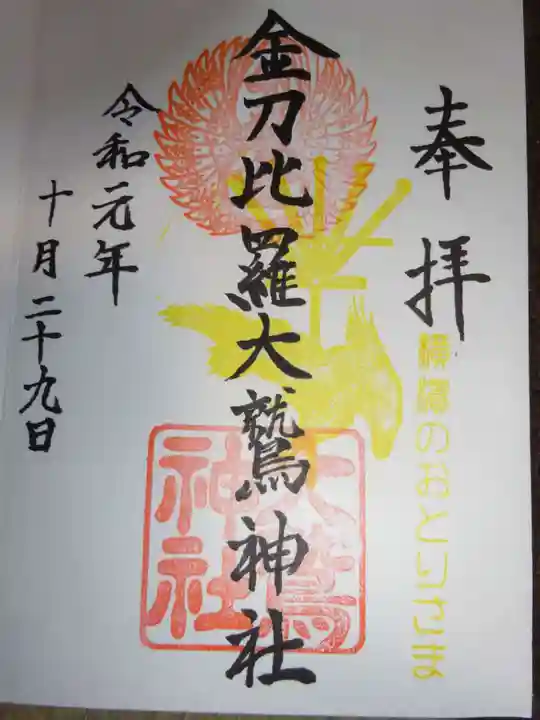 奉拝
横濱のおとりさま
金刀比羅大鷲神社
大鷲
神社
令和元年
十月二十九日